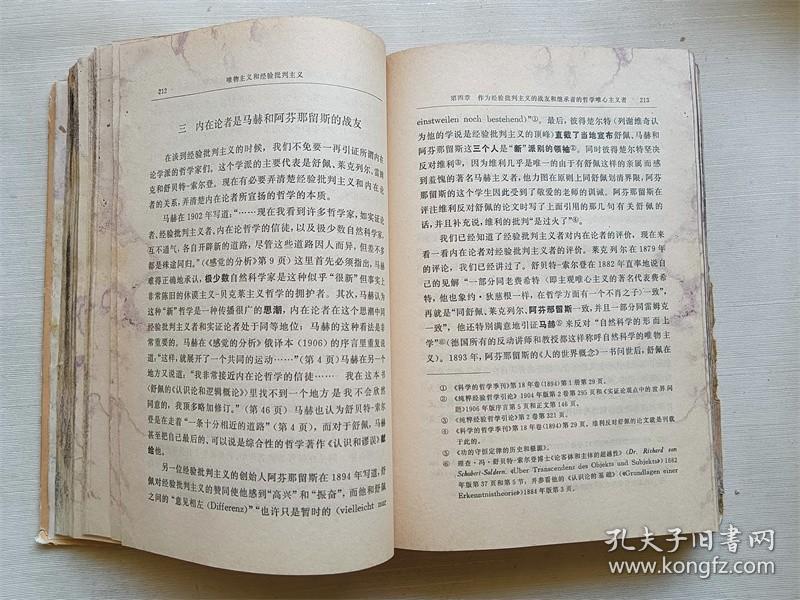 212
唯物主义和经验批判主义
三 内在论者是马赫和阿芬那留斯的战友
在谈到经验批判主义的时候，我们不免要一再引证所谓内在
论学派的哲学家们，这个学派的主要代表是舒佩、莱克列尔、雷姆
克和舒贝特-索尔登。现在有必要弄清楚经验批判主义和内在论
者的关系，弄清楚内在论者所宣扬的哲学的本质。
马赫在 1902 年写道：“……现在我看到许多哲学家，如实证论
者、经验批判主义者、内在论哲学的信徒，以及极少数自然科学家，
互不通气，各自开辟新的道路，尽管这些道路因人而异，但差不多
都是殊途同归。”（《感觉的分析》第 9 页）这里首先必须指出，马赫
难得正确地承认，极少数自然科学家是这种似乎“很新”但事实上
非常陈旧的休谟主义-贝克莱主义哲学的拥护者。其次，马赫认为
这种“新”哲学是一种传播很广的思潮，内在论者在这个思潮中同
经验批判主义者和实证论者处于同等地位；马赫的这种看法是非
常重要的。马赫在《感觉的分析》俄译本（1906）的序言里重复说
道：“这样，就展开了一个共同的运动……”（第 4 页）马赫在另一个
地方又说道：“我非常接近内在论哲学的信徒…… 我在这本书
（《舒佩的《认识论和逻辑概论》》）里找不到一个地方是我不会欣然
同意的，我顶多略加修订。”（第 46 页）马赫也认为舒贝特-索尔
登是在走着“一条十分相近的道路”（第 4 页），而对于舒佩，马赫
甚至把自己最后的、可以说是综合性的哲学著作《认识和谬误》献
给他。
另一位经验批判主义的创始人阿芬那留斯在 1894 年写道，舒
佩对经验批判主义的赞同使他感到“高兴”和“振奋”，而他和舒佩
之间的“意见相左（Differenz）”“也许只是暂时的（vielleicht nur
第四章 作为经验批判主义的战友和继承者的哲学唯心主义者 213
einstweilen noch bestehend）”①。最后，彼得楚尔特（列谢维奇认
为他的学说是经验批判主义的顶峰）直截了当地宣布舒佩、马赫和
阿芬那留斯这三个人是“新”派别的领袖②。同时彼得楚尔特坚决
反对维利③，因为维利几乎是唯一的由于有舒佩这样的亲属而感
到羞愧的著名马赫主义者，他力图在原则上同舒佩划清界限，阿芬
那留斯的这个学生因此受到了敬爱的老师的训诫。阿芬那留斯在
评注维利反对舒佩的论文时写了上面引用的那几句有关舒佩的
话，并且补充说，维利的批判“是过火了”④。
我们已经知道了经验批判主义者对内在论者的评价，现在来
看一看内在论者对经验批判主义者的评价。莱克列尔在 1879 年
的评论，我们已经讲过了。舒贝特-索尔登在 1882 年直率地说自
己的见解“一部分同老费希特（即主观唯心主义的著名代表费希
特，他也象约·狄慈根一样，在哲学方面有一个不肖之子）一致”，
再就是“同舒佩、莱克列尔、阿芬那留斯一致，并且一部分同雷姆克
一致”，他还特别满意地引证马赫⑤来反对“自然科学的形而上
学”⑥（德国所有的反动讲师和教授都这样称呼自然科学的唯物主
义）。1893 年，阿芬那留斯的《人的世界概念》一书问世后，舒佩在
① 《科学的哲学季刊》第 18 年卷（1894）第 1 册第 29 页。
② 《纯粹经验哲学引论》1904 年版第 2 卷第 295 页和《实证论观点中的世界问
题》1906 年版序言第 5 页和正文第 146 页。
③ 《纯粹经验哲学引论》第 2 卷第 321 页。
④ 《科学的哲学季刊》第 18 年卷（1894）第 29 页。维利反对舒佩的论文就是刊载
于此的。
⑤ 《功的守恒定律的历史和根源》。
⑥ 理查·冯·舒贝特-索尔登博士《论客体和主体的超越性》（Dr. Richard von
Schubert-Soldern. «Über Transcendenz des Objekts und Subjekts»）1882
年版第 37 页和第 5 节，并参看他的《认识论的基础》（«Grundlagen einer
Erkenntnistheorie»）1884 年版第 3 页。
孔夫子旧书网
www.kongfz.com